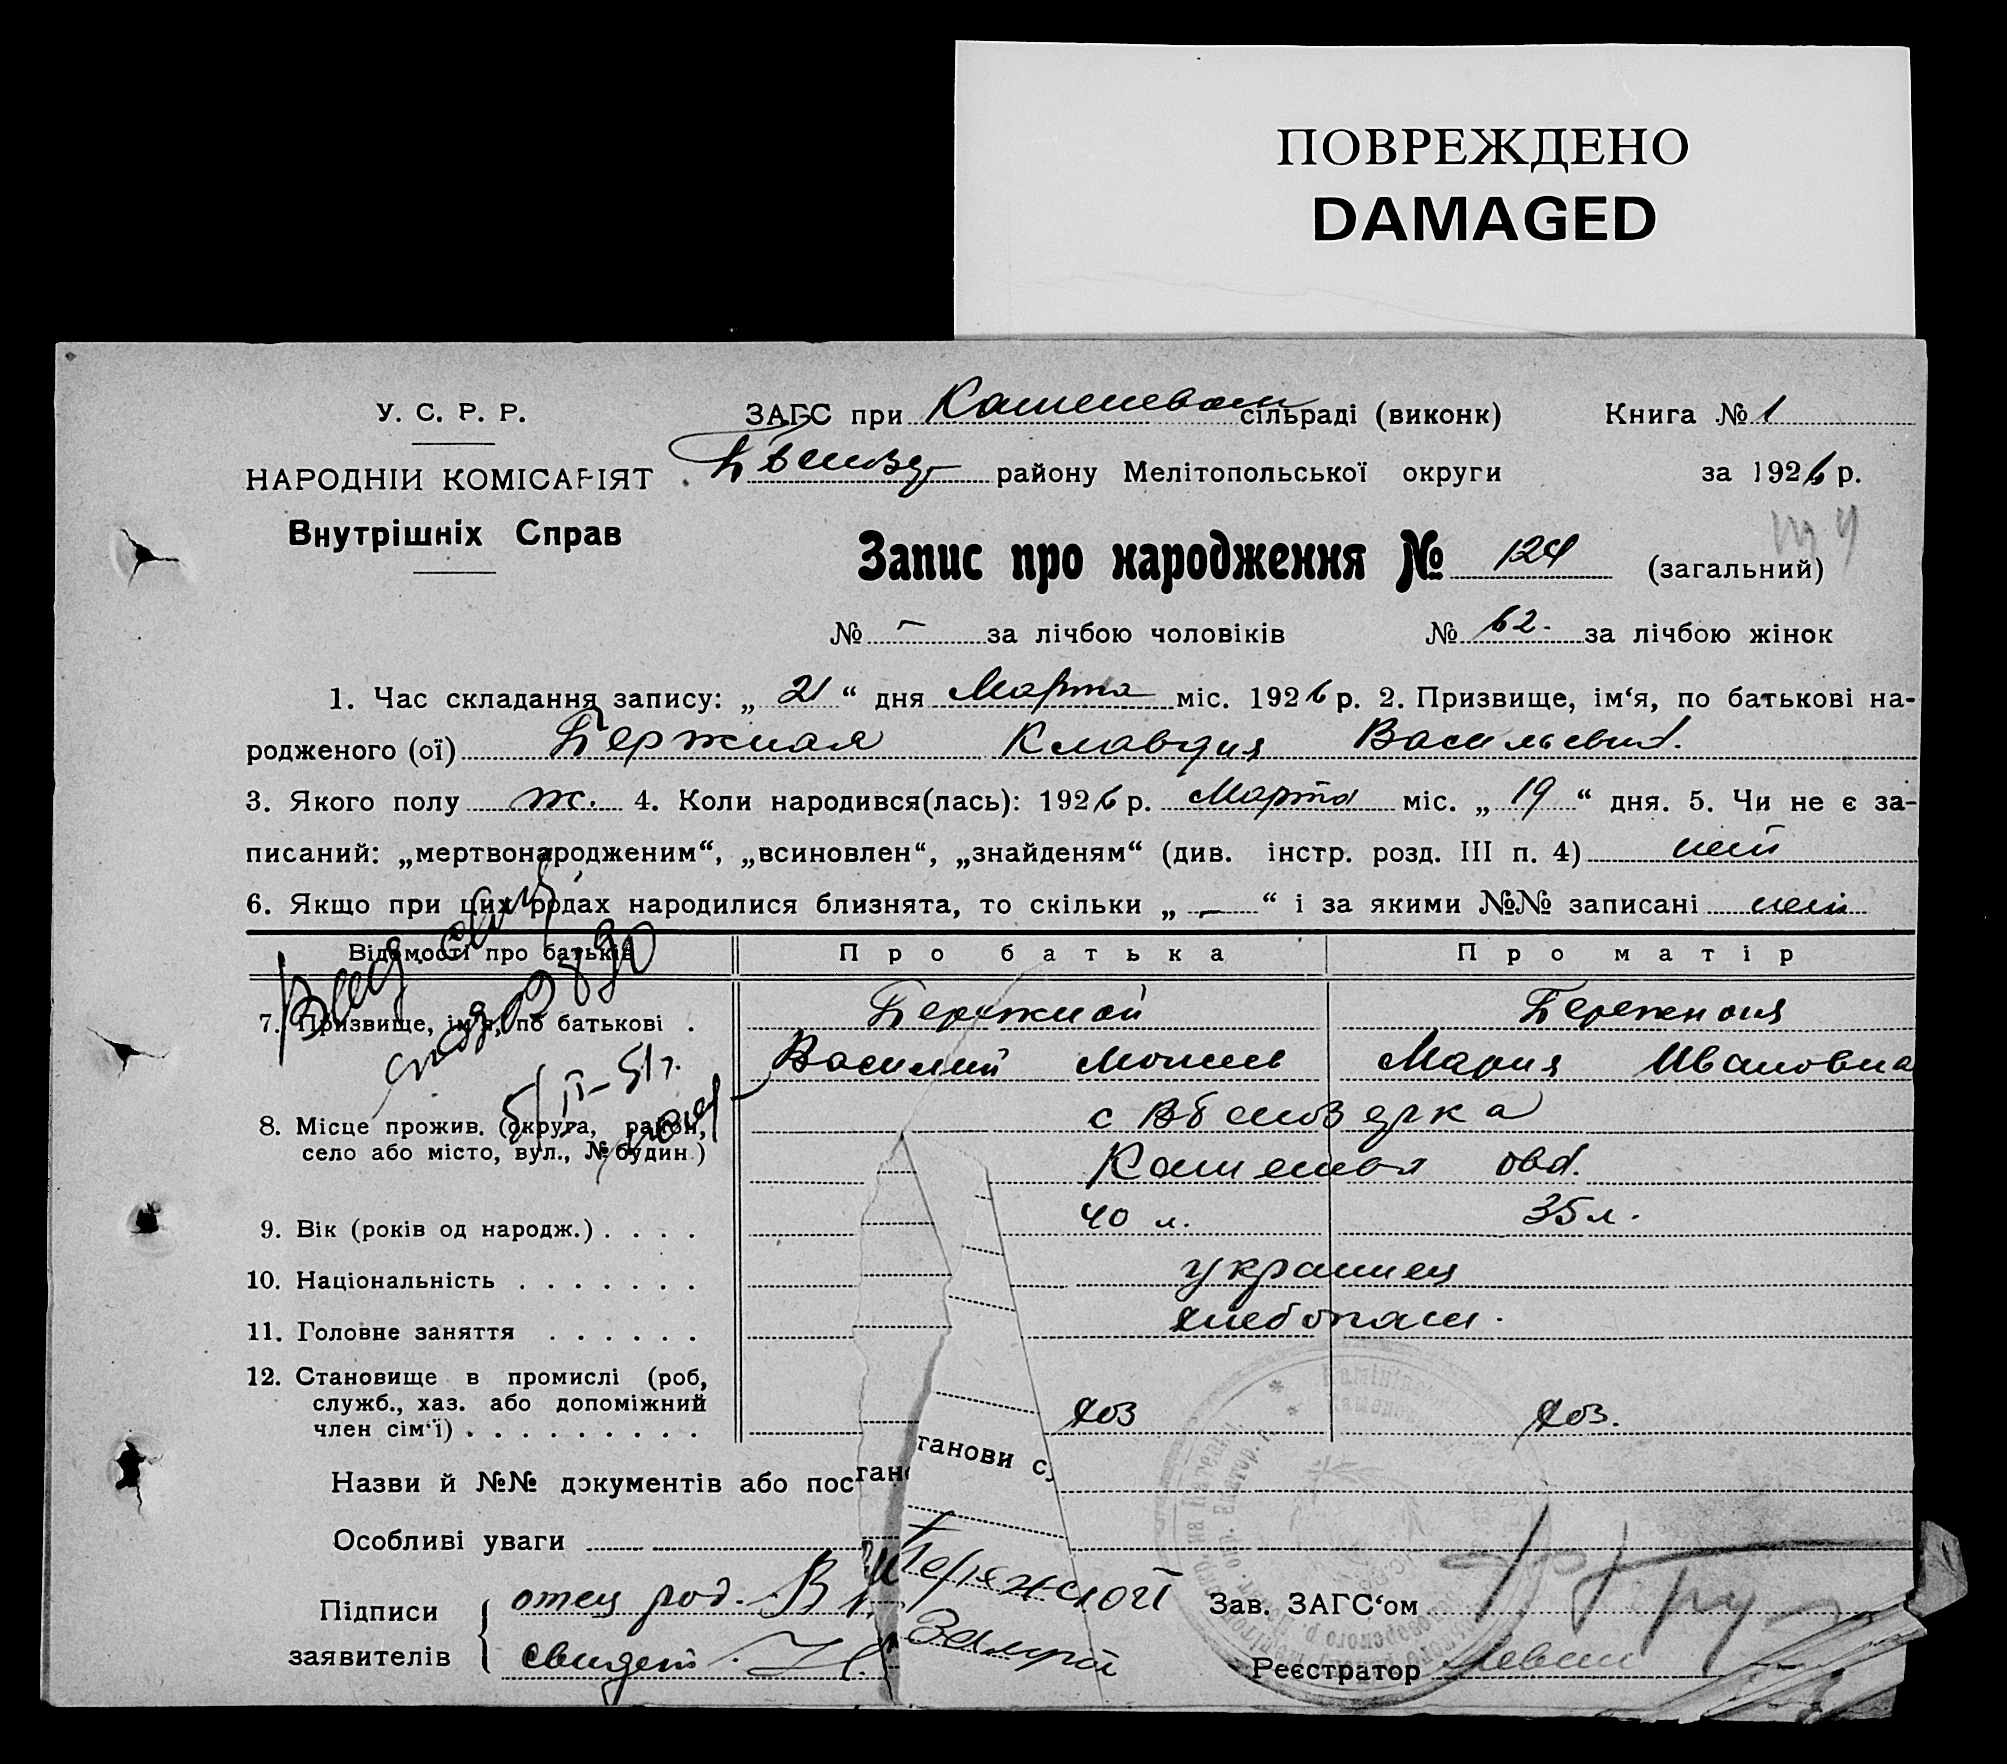 ПОВРЕЖДЕНО
DAMAGED
У. С. Р. Р.
ЗАГС при сільраді (виконк) Книга № 1
НАРОДНІЙ КОМІСАРІЯТ
району Мелітопольської округи за 1926 р.
Внутрішніх Справ
Запис про народження № 124 (загальний)
№ – за лічбою чоловіків № 62. за лічбою жінок
1. Час складання запису: „ 21 “ дня Марта міс. 1926 р. 2. Призвище, ім‘я, по батькові на-
родженого (ої) Бержная Клавдия
3. Якого полу ж. 4. Коли народився(лась): 1926 р. Марта міс. „ 19 “ дня. 5. Чи не є за-
писаний: „мертвонародженим“, „всиновлен“, „знайденям“ (див. інстр. розд. III п. 4) нет
6. Якщо при цих родах народилися близнята, то скільки „ – “ і за якими №№ записані нет
Відомості про батьків Про батька Про матір
7. Призвище, ім‘я, по батькові . Бережной Бережная
Василий Мария Ивановна
5/II–51г.
8. Місце прожив. (округа, район,
село або місто, вул., № будин.)
9. Вік (років од народж.) . . . . 40 л. 35 л.
10. Національність . . . . . . . украинец
11. Головне заняття . . . . . . хлебопаш.
12. Становище в промислі (роб,
служб., хаз. або допоміжний
член сім‘ї) . . . . . . . . . хоз хоз.
Назви й №№ документів або пос танови с
Особливі уваги
Підписи заявителів
отец род. В Бережной
свидет.
Зав. ЗАГС‘ом
Реєстратор